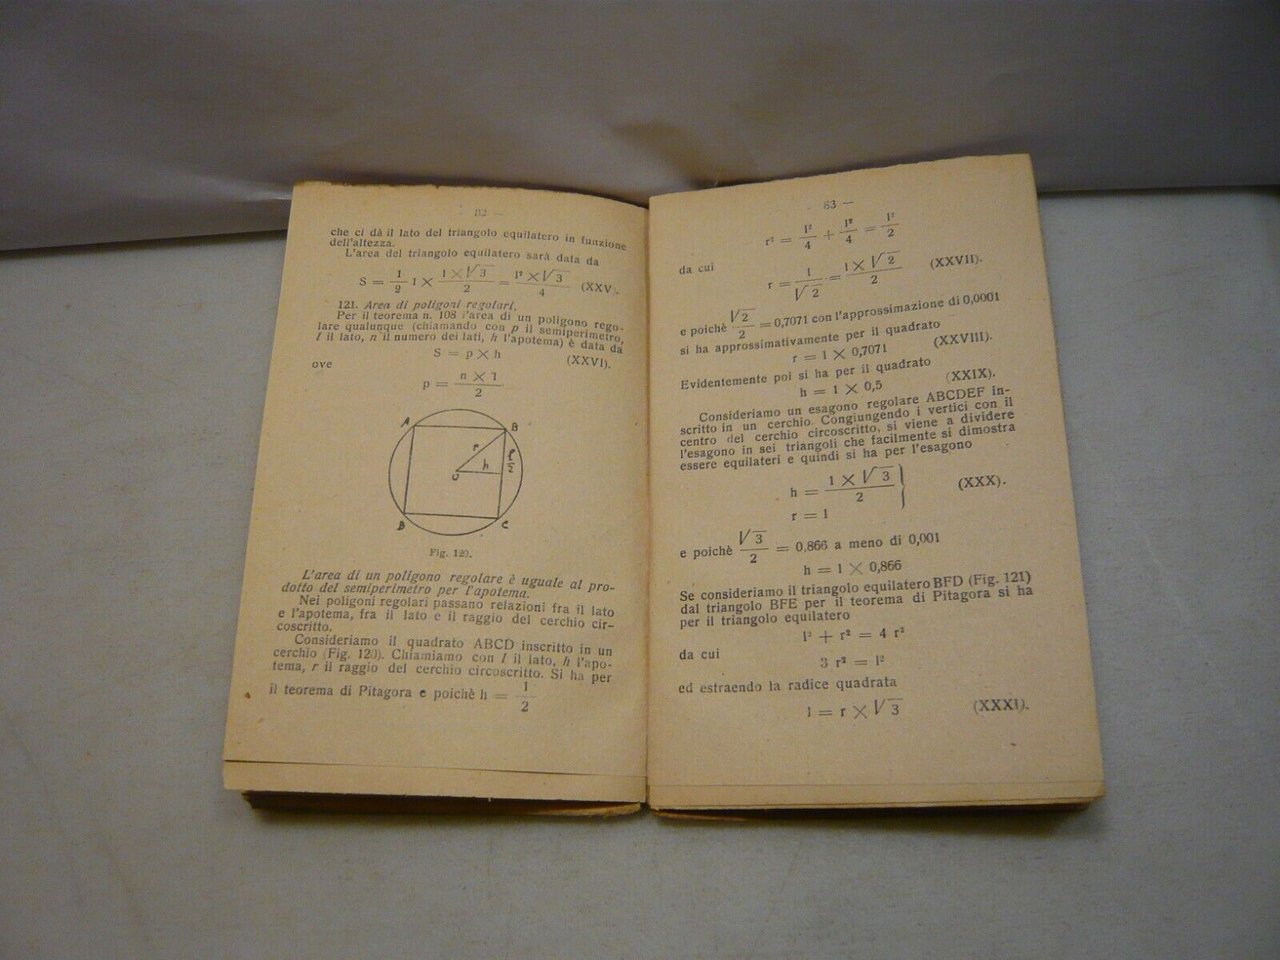 82 —
che ci dà il lato del triangolo equilatero in funzione
dell'altezza.
L'area del triangolo equilatero sarà data da
S = 1/2 l × l × √3 / 2 = l² × √3 / 4 (XXV).
121. Area di poligoni regolari.
Per il teorema n. 108 l'area di un poligono rego-
lare qualunque (chiamando con p il semiperimetro,
l il lato, n il numero dei lati, h l'apotema) è data da
S = p × h (XXVI).
ove
p = n × l / 2
A B
r l/2
h
O
D C
Fig. 120.
L'area di un poligono regolare è uguale al pro-
dotto del semiperimetro per l'apotema.
Nei poligoni regolari passano relazioni fra il lato
e l'apotema, fra il lato e il raggio del cerchio cir-
coscritto.
Consideriamo il quadrato ABCD inscritto in un
cerchio (Fig. 120). Chiamiamo con l il lato, h l'apo-
tema, r il raggio del cerchio circoscritto. Si ha per
il teorema di Pitagora e poichè h = 1/2
83 —
r² = l²/4 + l²/4 = l²/2
da cui
r = 1/√2 = 1 × √2 / 2 (XXVII).
e poichè √2/2 = 0,7071 con l'approssimazione di 0,0001
si ha approssimativamente per il quadrato
r = 1 × 0,7071 (XXVIII).
Evidentemente poi si ha per il quadrato
h = 1 × 0,5 (XXIX).
Consideriamo un esagono regolare ABCDEF in-
scritto in un cerchio. Congiungendo i vertici con il
centro del cerchio circoscritto, si viene a dividere
l'esagono in sei triangoli che facilmente si dimostra
essere equilateri e quindi si ha per l'esagono
h = 1 × √3 / 2 }
r = 1 (XXX).
e poichè √3/2 = 0,866 a meno di 0,001
h = 1 × 0,866
Se consideriamo il triangolo equilatero BFD (Fig. 121)
dal triangolo BFE per il teorema di Pitagora si ha
per il triangolo equilatero
l² + r² = 4 r²
da cui
3 r² = l²
ed estraendo la radice quadrata
l = r × √3 (XXXI).